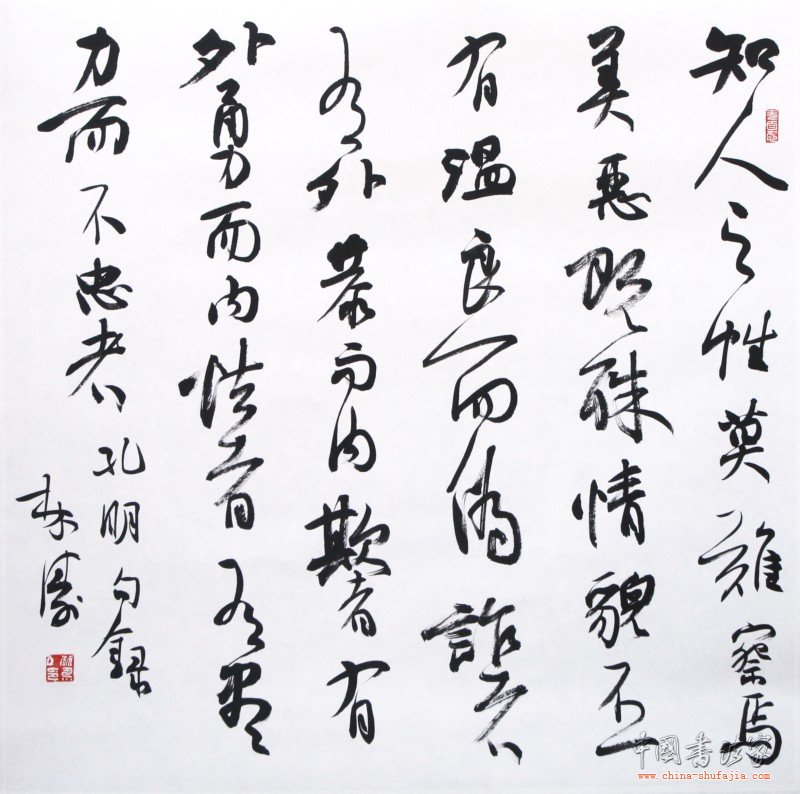 知人之性莫難察焉
美惡既殊情貌不一
有温良而偽詐者
有外恭而内欺者有
外勇而内怯者有盡
力而不忠者 孔明句録
中國書法家
www.china-shufajia.com